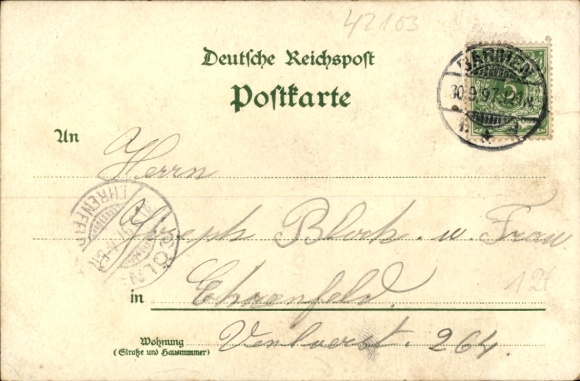 42103
Deutsche Reichspost
Postkarte
BARMEN
30.9.97.
1. * 1
An Herrn
Joseph Block. u. Frau
CÖLN-EHRENFELD
in Ehrenfeld.
12
Wohnung
(Straße und Hausnummer)
Venloerst. 264.